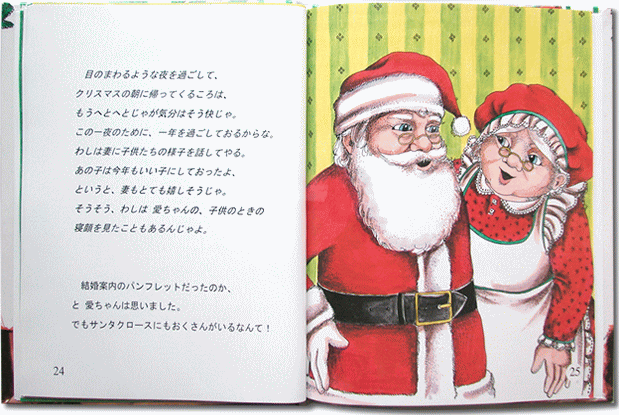 目のまわるような夜を過ごして、
クリスマスの朝に帰ってくるころは、
もうへとへとじゃが気分はそう快じゃ。
この一夜のために、一年を過ごしておるからな。
わしは妻に子供たちの様子を話してやる。
あの子は今年もいい子にしておったよ、
というと、妻もとても嬉しそうじゃ。
そうそう、わしは 愛ちゃんの、子供のときの
寝顔を見たこともあるんじゃよ。
結婚案内のパンフレットだったのか、
と 愛ちゃんは思いました。
でもサンタクロースにもおくさんがいるなんて！
24
25